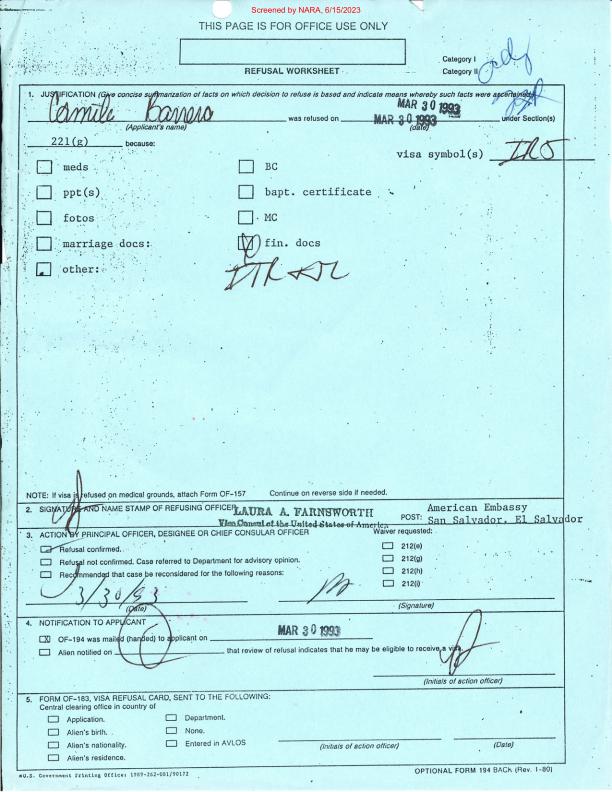 Screened by NARA, 6/15/2023
THIS PAGE IS FOR OFFICE USE ONLY
Category I
Category II
REFUSAL WORKSHEET
1. JUSTIFICATION (Give concise summarization of facts on which decision to refuse is based and indicate means whereby such facts were ascertained)
MAR 30 1993
Barrera was refused on MAR 30 1993 under Section(s)
(Applicant's name) (date)
221(g) because:
visa symbol(s) IR5
meds BC
ppt(s) bapt. certificate
fotos MC
marriage docs: fin. docs
other:
NOTE: If visa is refused on medical grounds, attach Form OF-157 Continue on reverse side if needed.
2. SIGNATURE AND NAME STAMP OF REFUSING OFFICER LAURA A. FARNSWORTH
Vice Consul of the United States of America
POST: American Embassy
San Salvador, El Salvador
3. ACTION BY PRINCIPAL OFFICER, DESIGNEE OR CHIEF CONSULAR OFFICER Waiver requested:
Refusal confirmed. 212(e)
Refusal not confirmed. Case referred to Department for advisory opinion. 212(g)
Recommended that case be reconsidered for the following reasons: 212(h)
212(i)
3/30/93
(Date) (Signature)
4. NOTIFICATION TO APPLICANT
OF-194 was mailed (handed) to applicant on MAR 30 1993
Alien notified on that review of refusal indicates that he may be eligible to receive a visa.
(Initials of action officer)
5. FORM OF-183, VISA REFUSAL CARD, SENT TO THE FOLLOWING:
Central clearing office in country of
Application. Department.
Alien's birth. None.
Alien's nationality. Entered in AVLOS
Alien's residence.
(Initials of action officer) (Date)
U.S. Government Printing Office: 1989-262-001/90172
OPTIONAL FORM 194 BACK (Rev. 1-80)